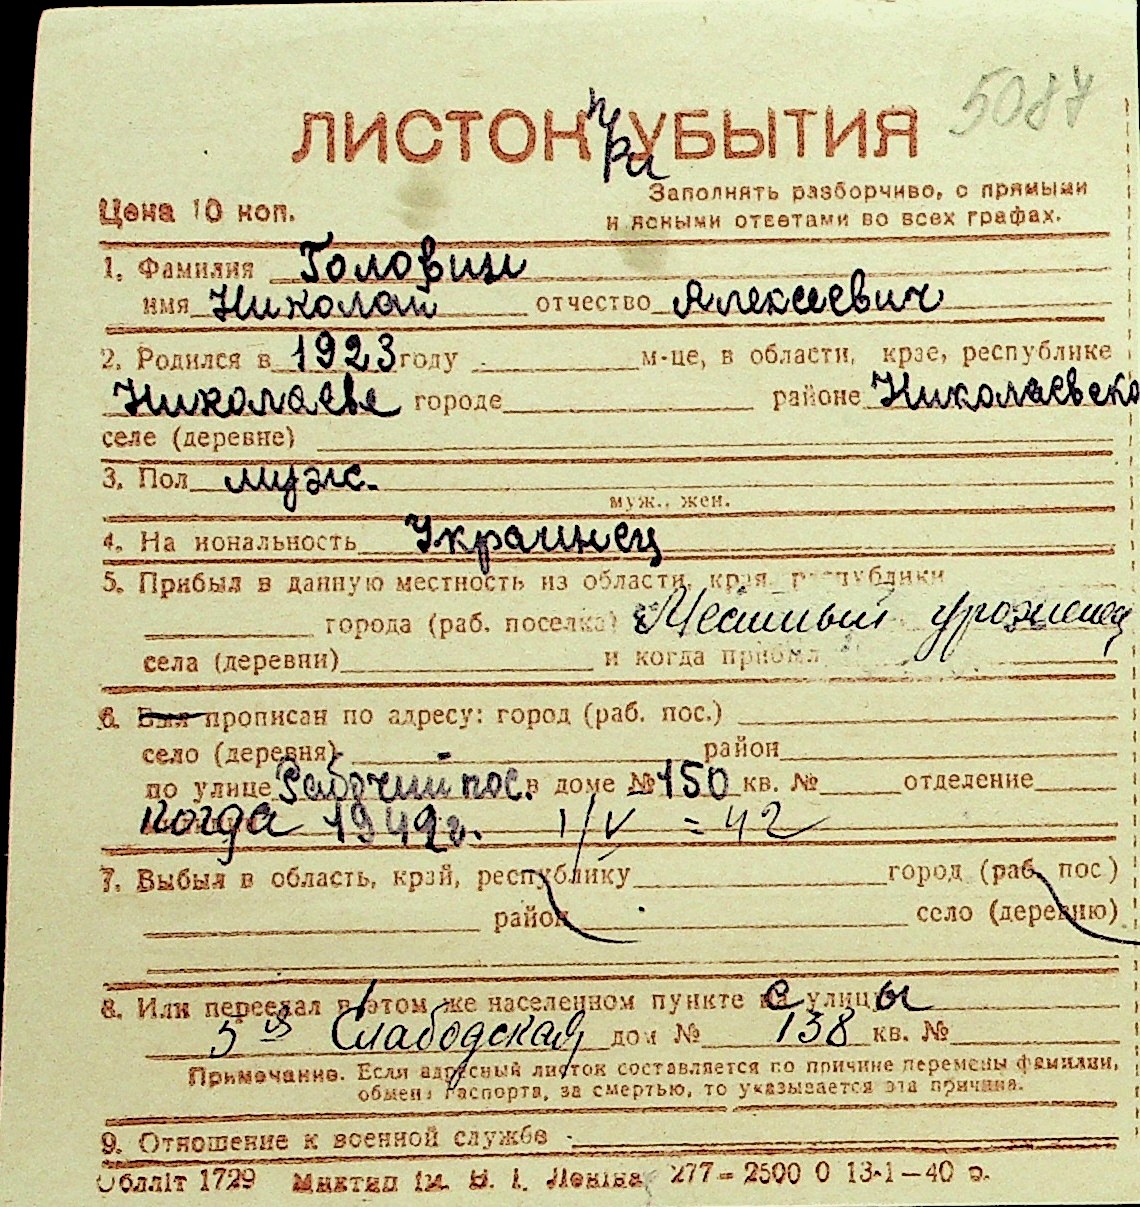 5087
ЛИСТОК при УБЫТИЯ
Цена 10 коп.
Заполнять разборчиво, с прямыми
и ясными ответами во всех графах.
1. Фамилия Головин
имя Николай отчество Алексеевич
2. Родился в 1923 году м-це, в области, крае, республике
Николаеве городе районе Николаевско
селе (деревне)
3. Пол муж.
муж., жен.
4. На иональность Украинец
5. Прибыл в данную местность из области, края, республики
города (раб. поселка) Местный уроженец
села (деревни) и когда прибыл
6. Был прописан по адресу: город (раб. пос.)
село (деревня) район
по улице Рабочий пос. в доме № 150 кв. № отделение
когда 1942г. 1/V = 42
7. Выбыл в область, край, республику город (раб. пос)
район село (деревню)
8. Или переехал в этом же населенном пункте с улицы
5ая Слабодская дом № 138 кв. №
Примечание. Если адресный листок составляется по причине перемены фамилии,
обмена паспорта, за смертью, то указывается эта причина.
9. Отношение к военной службе
Облліт 1729 Миктип ім. В. І. Леніна 277–2500 0 13-1–40 р.